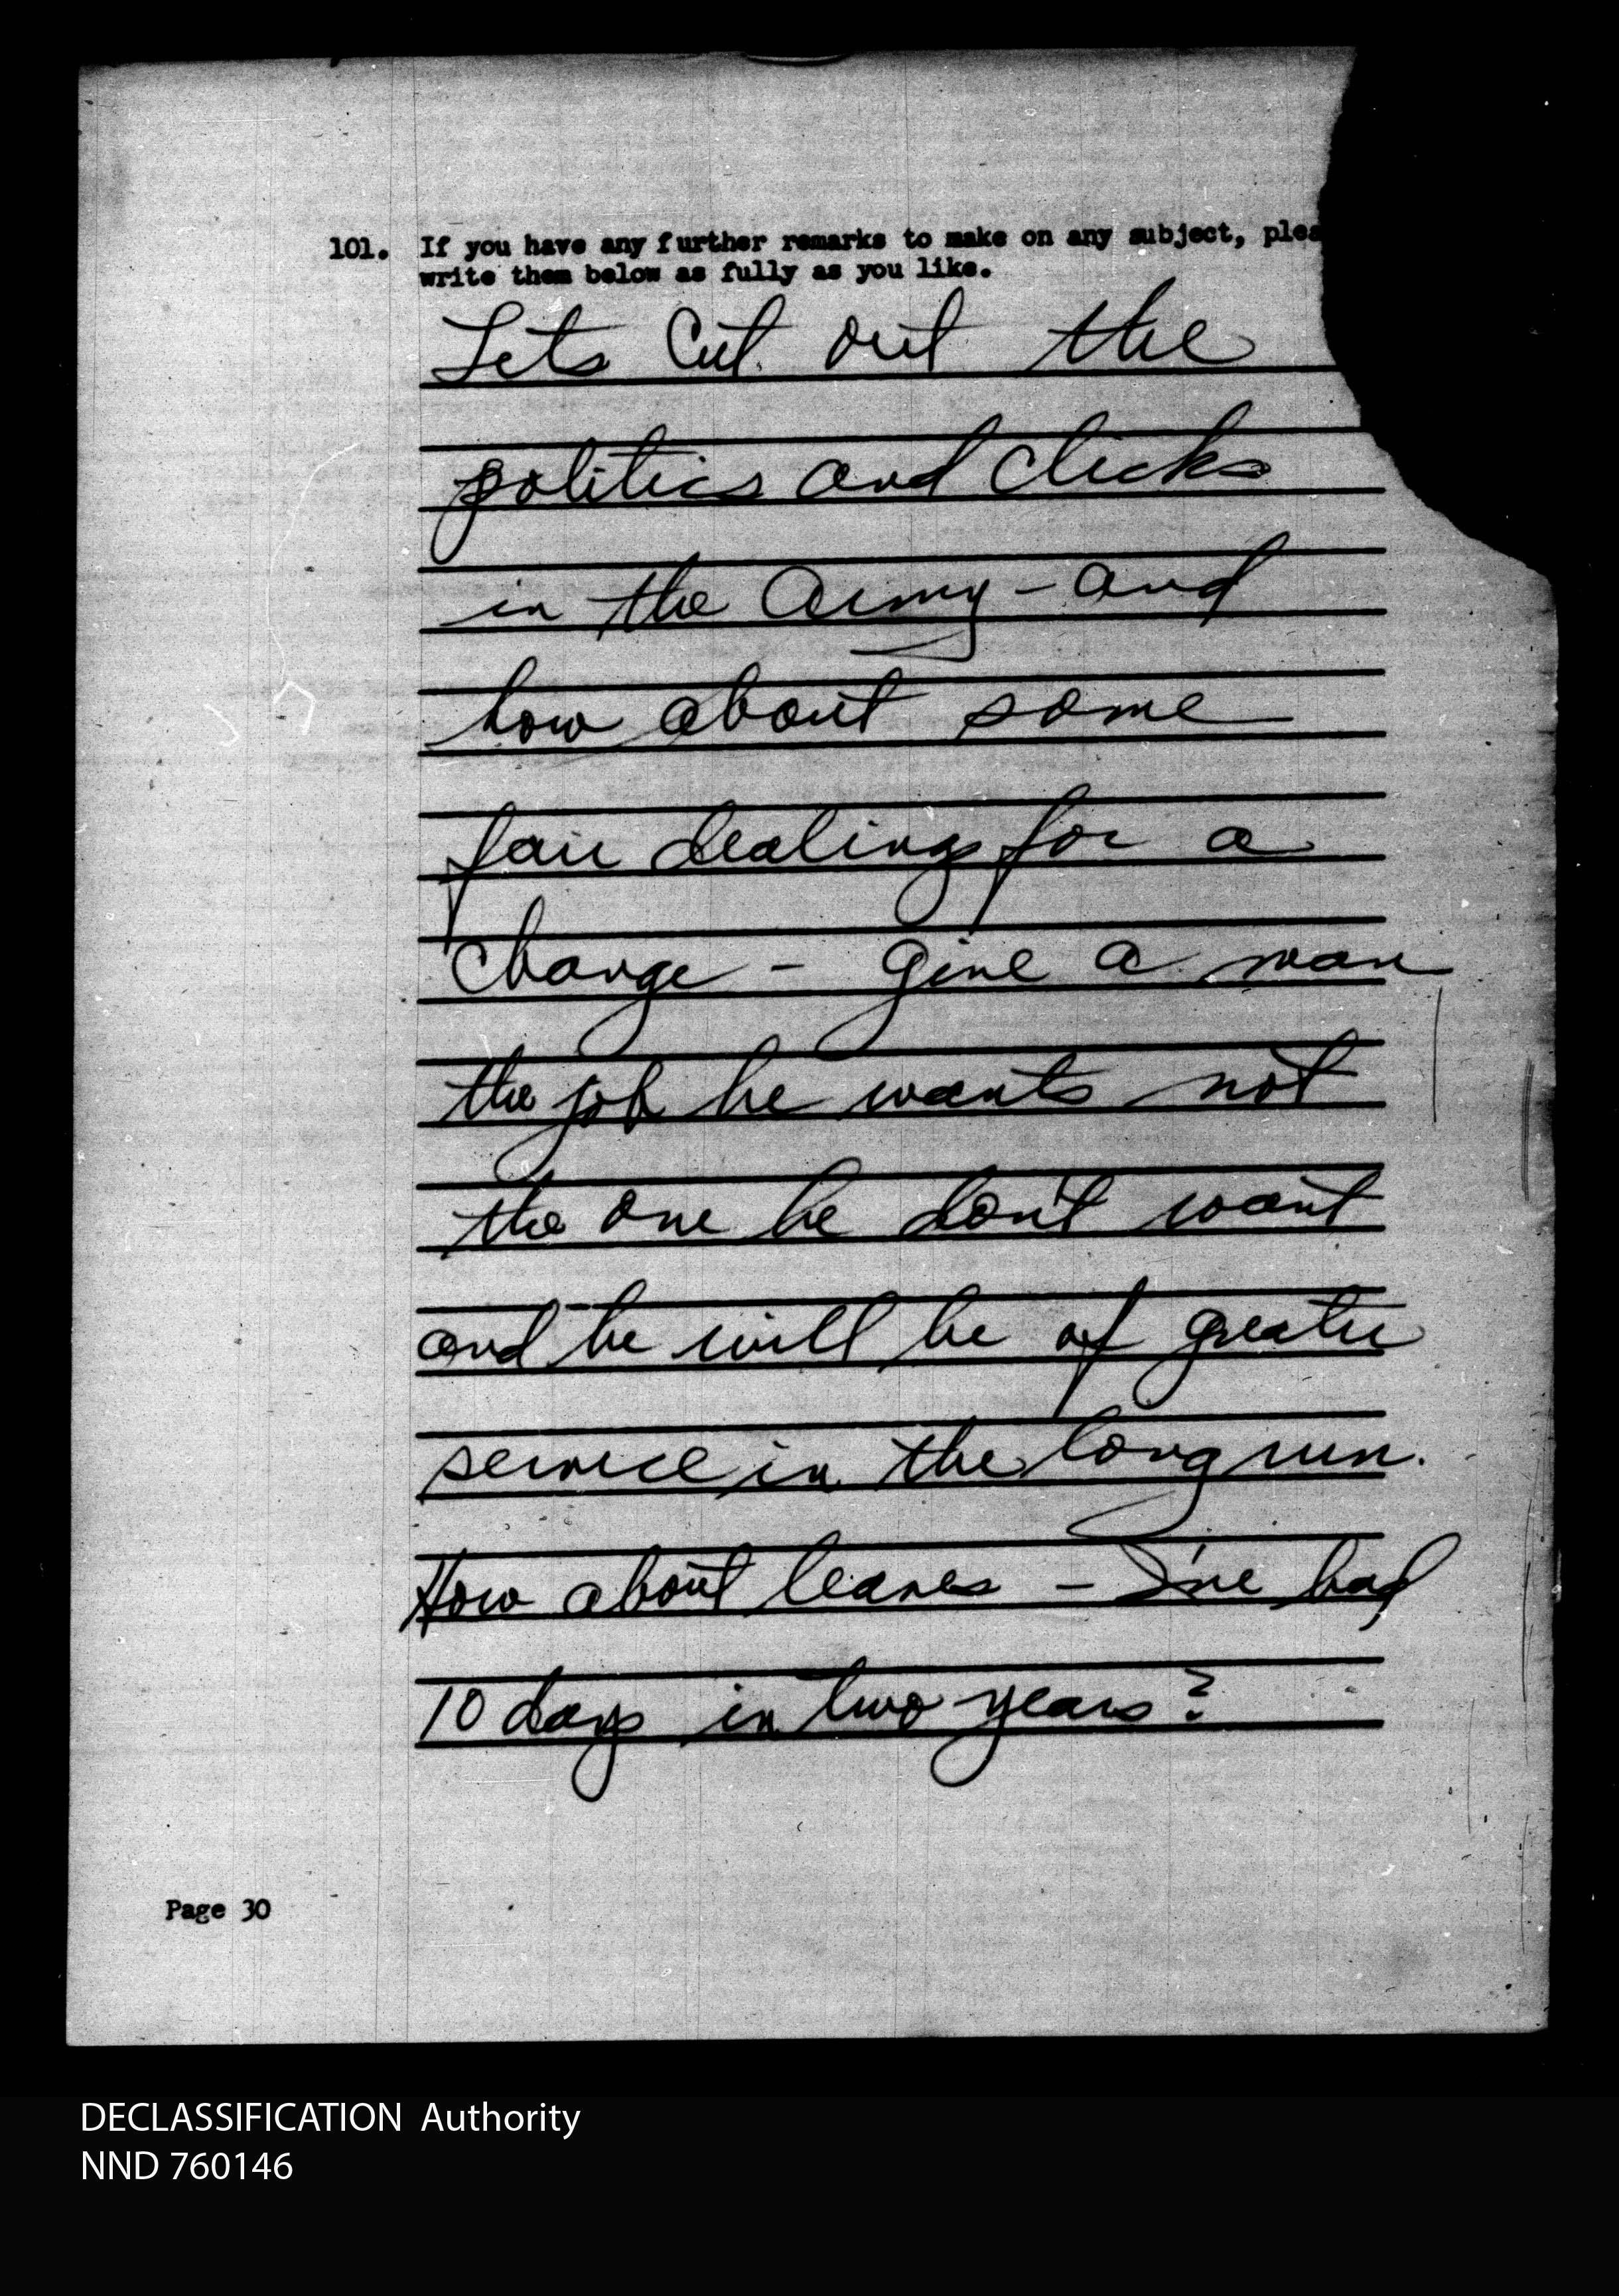 101. If you have any further remarks to make on any subject, plea
write them below as fully as you like.
Lets Cut out the
politics and clicks
in the Army - and
how about some
fair dealings for a
change - give a man
the job he wants not
the one he don't want
and he will be of greater
service in the long run.
How about leaves - I've had
10 days in two years?
Page 30
DECLASSIFICATION Authority
NND 760146